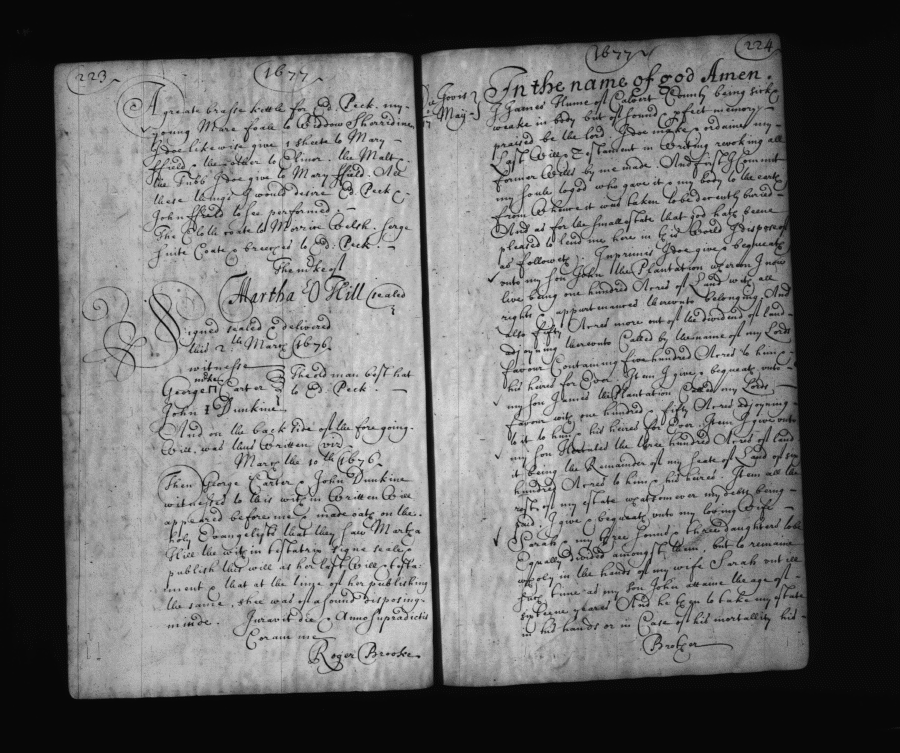 223
1677
A greate brasse kettle for Ed. Peck. my
young Mare foale to Widdow Sherredine
I doe likewise give 1 sheete to Mary
ffield & the other to Elinor. the Malt &
the Tubb I doe give to Mary ffield. All
these things I would desire Ed Peck &
John ffield to see performed.
The Cloth coate to Morrice Welsh. serge
suite Coate & breeches to Ed: Peck.
The mke of
Martha O Hill sealed
Signed sealed & delivered
this 2th March 1676
witnesse
mke
George Carter The old man best hat
to Ed. Peck.
John Dunkine
And on the back side of the foregoing
Will, was thus Written viz
March the 10th 1676.
Then George Carter & John Dunkine
witnesses to this within Written Will
appeared before me & made oath on the
holy Evangelists that they saw Martha
Hill the within testatrix signe seale &
publish this will as her last Will & testa-
ment & that at the time of her publishing
the same, shee was of a sound disposing
minde. Juravit die & Anno Supradictis
Coram me
Roger Brooke
1677
224
In the name of god Amen
May
I James Hume of Calvert County being sick &
weake in body but of sound & perfect memory
praised be the lord. I doe make & ordaine my
Last Will & Testament in Writing revoking all
former Wills by me made And first I Commit
my soule to god who gave it & my body to the earth
from whence it was taken to be decently buried
And as for the small estate that god hath beene
pleasd to lend me here in this World I dispose of
as followeth. Inprimis I doe give & bequeath
unto my son John the Plantation whereon I now
live being one hundred Acres of Land with all
rights & appurtenances thereunto belonging. And
also fifty Acres more out of the dividend of land
adjoyning thereunto Called by the name of my Lords
favour Containing five hundred Acres to him &
his heires for Ever. Item I give & bequeath unto
my son James the Plantation Called my Lords
favour with one hundred & fifty Acres adjoyning
to it to him & his heires for Ever. Item I give unto
my son the three hundred Acres of Land
it being the Remainder of my seate of Land of
hundred Acres to him & his heires. Item all the
rest of my estate whatsoever my debts being
paid I give & bequeath unto my loving Wife
Sarah & my three sonns & three daughters to be
Equally divided amongst them, but to remaine
wholy in the hands of my wife Sarah untill
such time as my son John attaine the age of
sixteene yeares And he then to take my estate
in his hands or in Case of his mortallity his
Brother